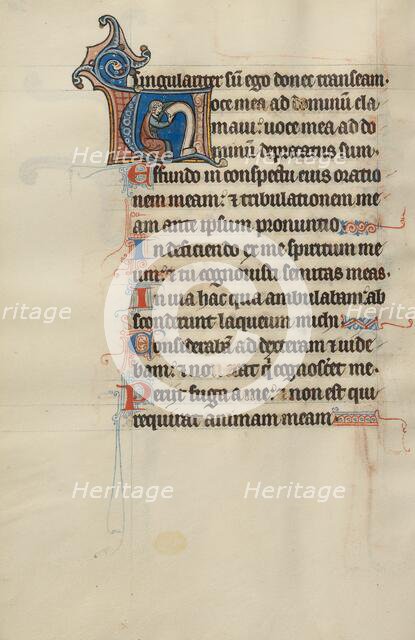 singulariter sū ego donec transeam.
Voce mea ad dominū cla
maui: uoce mea ad do
minū deprecatus sum.
Effundo in conspectu eius oratio
nem meam: & tribulationem me
am ante ipsum pronuntio
In deficiendo ex me spiritum me
um: & tu cognouisti semitas meas.
In uia hac qua ambulabam: ab
sconderunt laqueum michi
Considerabā ad dexteram & uide
bam: & non erat qͥ cognosceret me.
Periit fuga a me: & non est qui
requirat animam meam
Heritage
Heritage
Heritage
Heritage
Heritage
Heritage